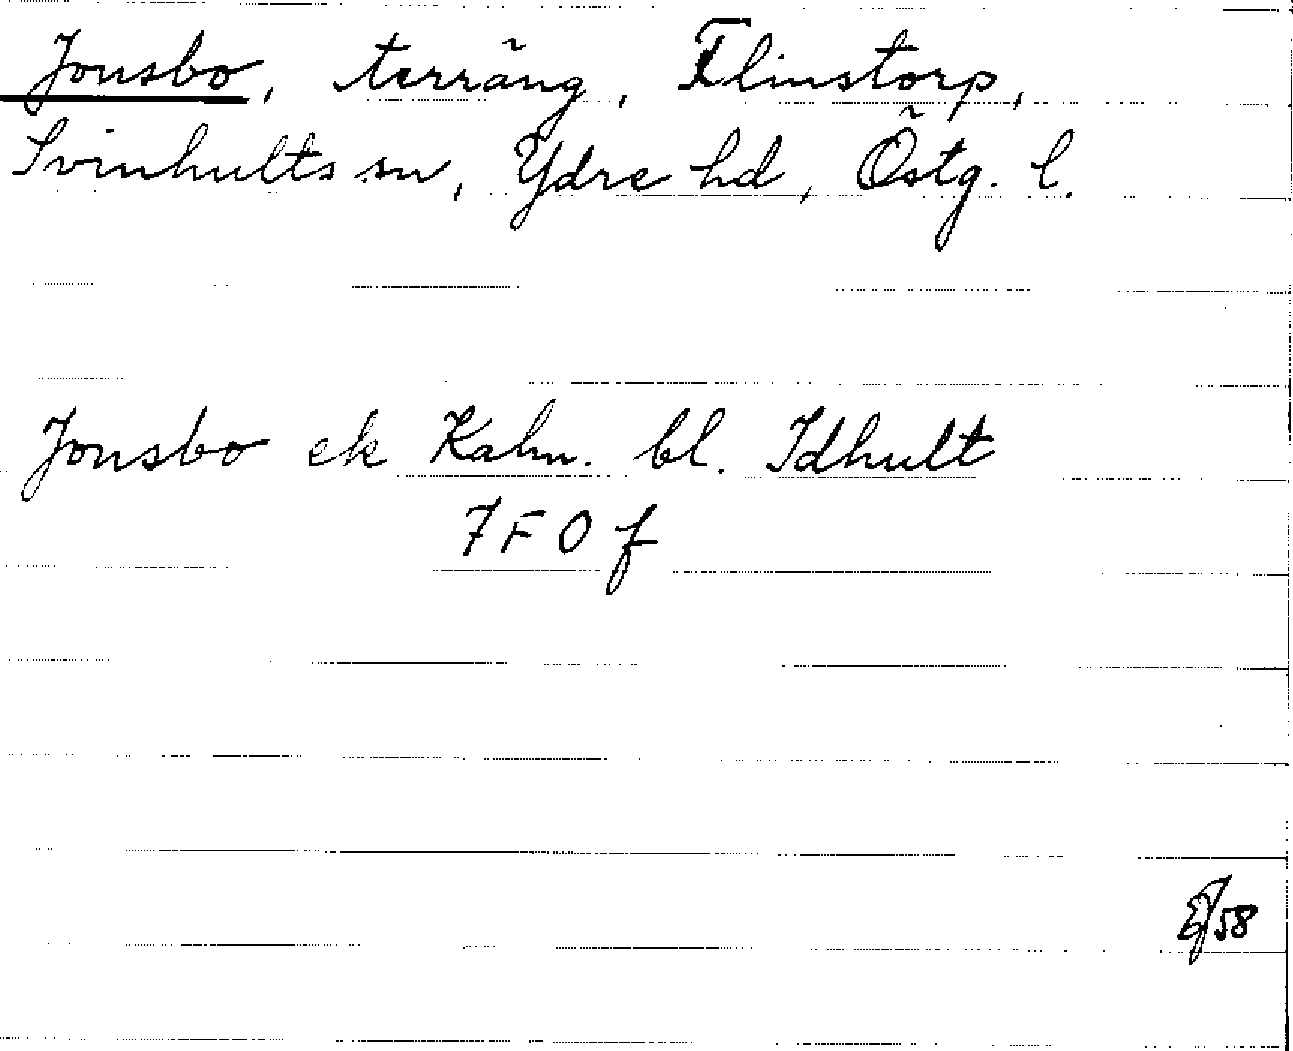 Jonsbo, terräng, Flinstorp,
Svinhults sn, Ydre hd, Östg. l.
Jonsbo ek Kahn. bl. Idhult
7 F 0 f
58